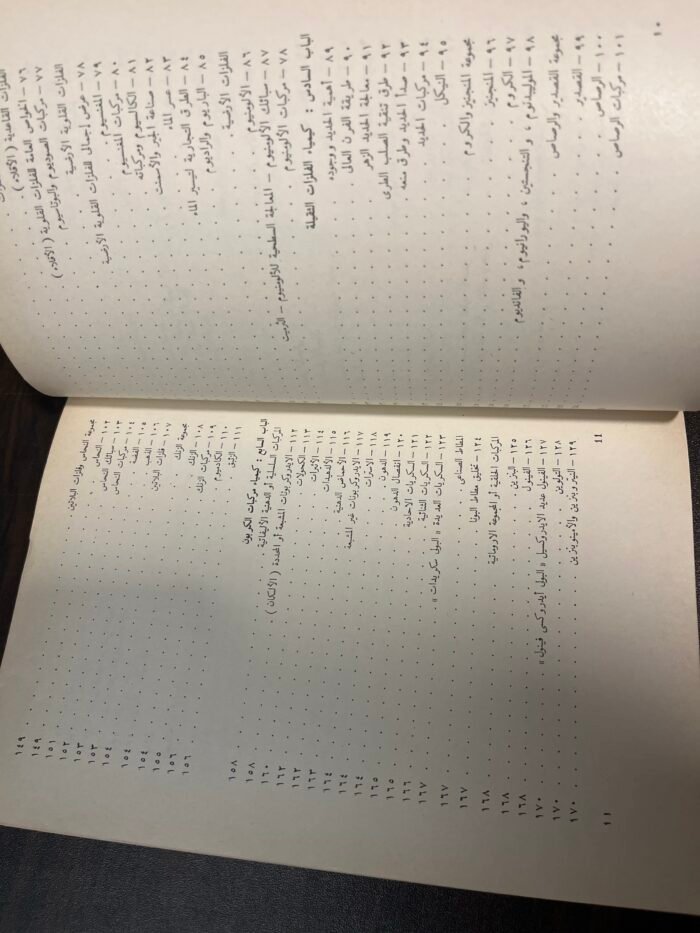 الفلزات القاعدية (الأقلاء)
٧٦ - الخواص العامة للفلزات القلوية (الأقلاء)
٧٧ - مركبات الصوديوم والبوتاسيوم
الفلزات القلوية الأرضية
٧٨ - عرض إجمالي للفلزات القلوية الأرضية
٧٩ - المغنسيوم
٨٠ - مركبات المغنسيوم
٨١ - الكالسيوم ومركباته
٨٢ - صناعة الجير والأسمنت
٨٣ - عسر الماء
٨٤ - الطرق التجارية لتيسير الماء
٨٥ - الباريوم والراديوم
الفلزات الأرضية
٨٦ - الألومنيوم
٨٧ - سبائك الألومنيوم - المعالجة السطحية للألومنيوم - الثرميت
٨٨ - مركبات الألومنيوم
الباب السادس : كيمياء الفلزات الثقيلة
٨٩ - أهمية الحديد ووجوده
٩٠ - طريقة الفرن العالي
٩١ - معالجة الحديد الزهر
٩٢ - طرق تنقية الصلب الطري
٩٣ - صدأ الحديد وطرق منعه
٩٤ - مركبات الحديد
٩٥ - النيكل
مجموعة المنجنيز والكروم
٩٦ - المنجنيز
٩٧ - الكروم
٩٨ - الموليبدنوم ، والتنجستين ، واليورانيوم ، والفانديوم
مجموعة القصدير والرصاص
٩٩ - القصدير
١٠٠ - الرصاص
١٠١ - مركبات الرصاص
١٠
مجموعة النحاس وفلزات البلاتين
١٠٢ - النحاس
١٠٣ - سبائك النحاس
١٠٤ - مركبات النحاس
١٠٥ - الفضة
١٠٦ - الذهب
١٠٧ - فلزات البلاتين
مجموعة الزنك
١٠٨ - الزنك
١٠٩ - مركبات الزنك
١١٠ - الكادميوم
١١١ - الزئبق
الباب السابع : كيمياء مركبات الكربون
المركبات السلسلية أو الدهنية الأليفاتية
١١٢ - الايدروكربونات المشبعة أو المحددة (الألكان)
١١٣ - الكحولات
١١٤ - الأثيرات
١١٥ - الألدهيدات
١١٦ - الأحماض الدهنية
١١٧ - الايدروكربونات غير المشبعة
١١٨ - الاسترات
١١٩ - الدهون
١٢٠ - انفصال الدهون
١٢١ - السكريات الاحادية
١٢٢ - السكريات الثنائية
١٢٣ - السكريات العديدة « البولي سكريدات »
المطاط الصناعي
١٢٤ - تخليق مطاط البونا
المركبات الحلقية أو المجموعة الاروماتية
١٢٥ - البنزين
١٢٦ - الفينول
١٢٧ - الفينول عديد الايدروكسيل « البولي أيدروكسي فينول »
١٢٨ - التولوين
١٢٩ - النيتروبنزين والأمينوبنزين
١٤٩
١٤٩
١٥١
١٥٢
١٥٣
١٥٣
١٥٤
١٥٤
١٥٤
١٥٥
١٥٦
١٥٦
١٥٨
١٥٨
١٦٠
١٦٢
١٦٢
١٦٣
١٦٤
١٦٤
١٦٤
١٦٥
١٦٥
١٦٦
١٦٧
١٦٧
١٦٨
١٦٨
١٦٨
١٧٠
١٧٠
١٧٠
١١